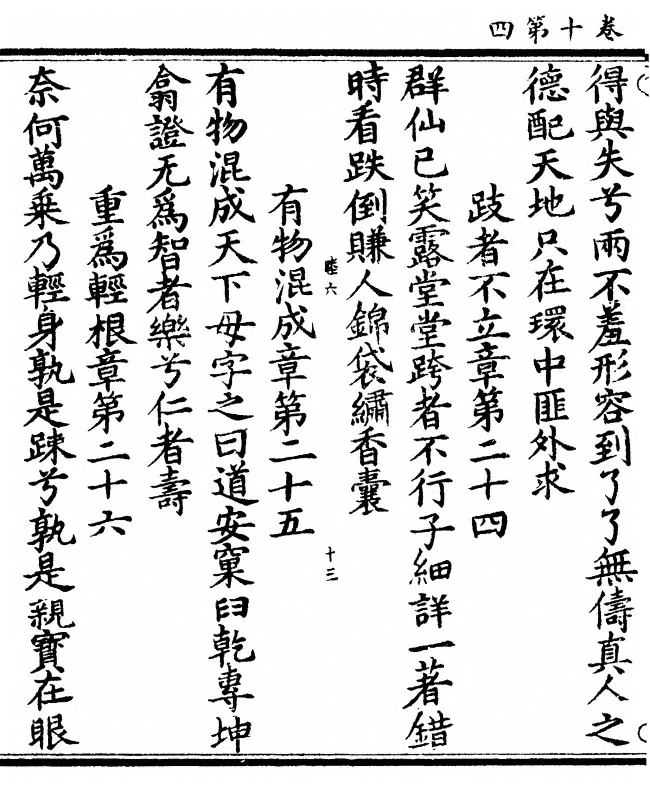 卷十第四
得與失兮兩不羞形容到了了無儔真人之
德配天地只在環中匪外求
跂者不立章第二十四
群仙已笑露堂堂跨者不行子細詳一著錯
時看跌倒賺人錦袋繡香囊
睦六 十三
有物混成章第二十五
有物混成天下母字之曰道安窠臼乾專坤
翕證无為智者樂兮仁者壽
重為輕根章第二十六
奈何萬乘乃輕身孰是踈兮孰是親寶在眼